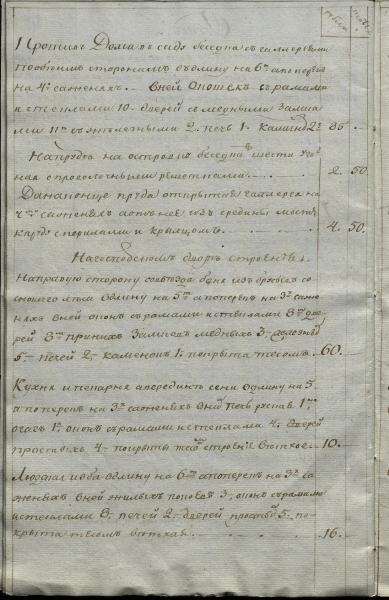 рубли копе
Противъ Дома въ саду беседка съ галлереями
по обѣимъ сторонамъ въ длину на 6ти а поперегъ
на 4х саженяхъ. в ней окошек с рамами
и стеклами 10. дверей с медными замка
ми 11ть с желѣзными 2. печь 1. каминъ 2. 85.
На пруде на острову беседка шести
ная с проволочными решетками. 2. 50.
Да на конце пруда открытая галлерея на
саженяхъ а
к пруду с перилами и крыльцомъ. 4. 50.
На господскомъ дворѣ строенье.
На правую сторону совъезда баня изъ бревенъ со
сноваго лѣса в длину на 5ти а поперегъ на 3х саже
няхъ в ней оконъ с рамами и стеклами 8ть две
рей 8мь при них замков медных 3. железных
5. печей 2. каменок 1. покрыта тесомъ. 60.
Кухня и пекарня а посередине сени в длину на 5.
а поперегъ на 3х саженяхъ в ней печь русская 1.
очаг 1. оконъ с рамами и стеклами 4. дверей
простых 4. покрыты строение ветхое. 10.
Людская изба в длину на 6ти а поперегъ на 3х са
женяхъ в ней жилых покоевъ 3. оконъ с рамами
и стеклами 8. печей 2. дверей простых 5. по
крыта тесомъ ветхая. 16.